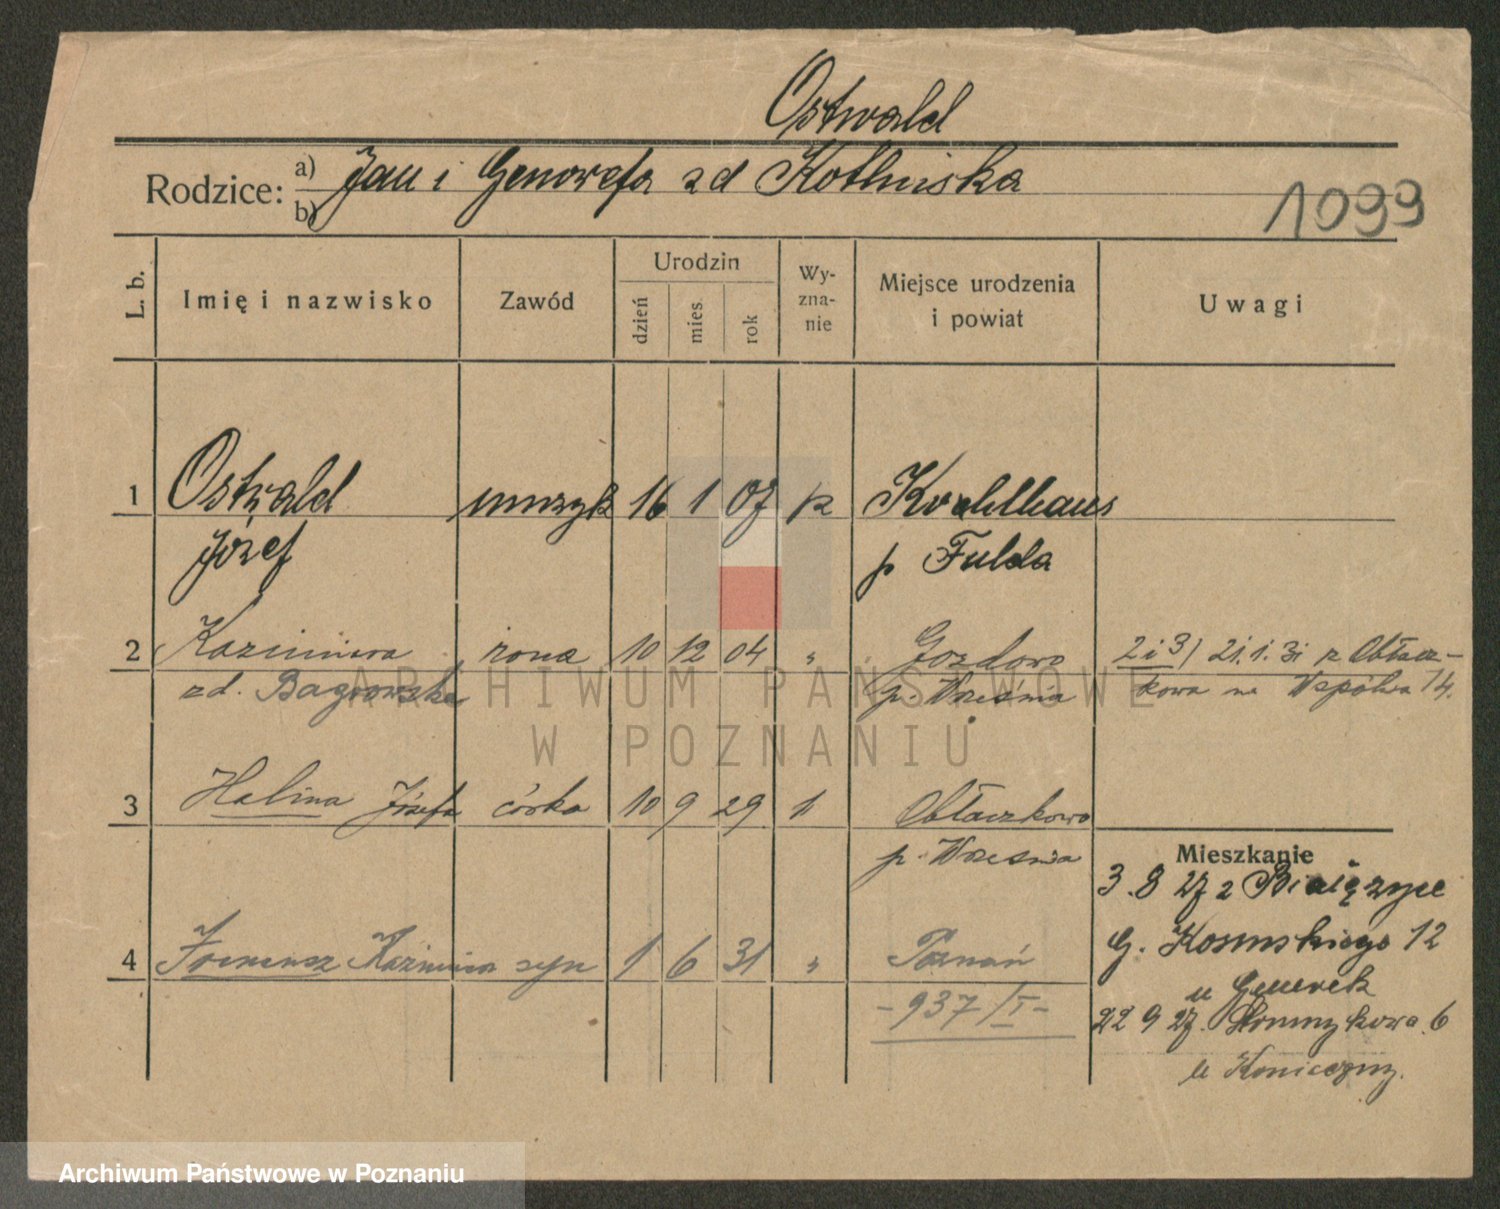 Ostwald
Rodzice: a) Jan i Genowefa zd Kotlinska
b)
1099
L. b. Imię i nazwisko Zawód Urodzin dzień mies. rok Wy-zna-nie Miejsce urodzenia i powiat Uwagi
1 Ostwald muzyk 16 1 07 rz Kohlhaus
Józef p Fulda
2 Kazimiera żona 10 12 04 " Gozdowo 2 i 3/ 21.1.31 z Obłacz-
zd. Bagrowska p. Września kowa na Wspólna 14.
3 Halina Józefa córka 10 9 29 Obłaczkowo
p. Września
Mieszkanie
3.8 27 z Biaiężyce
G. Kosinskiego 12
4 Ireneusz Kazimierz syn 1 6 31 " Poznań
u Generek
-937/I-
22 9 27. 6
u Konieczny.
ARCHIWUM PAŃSTWOWE
W POZNANIU
Archiwum Państwowe w Poznaniu